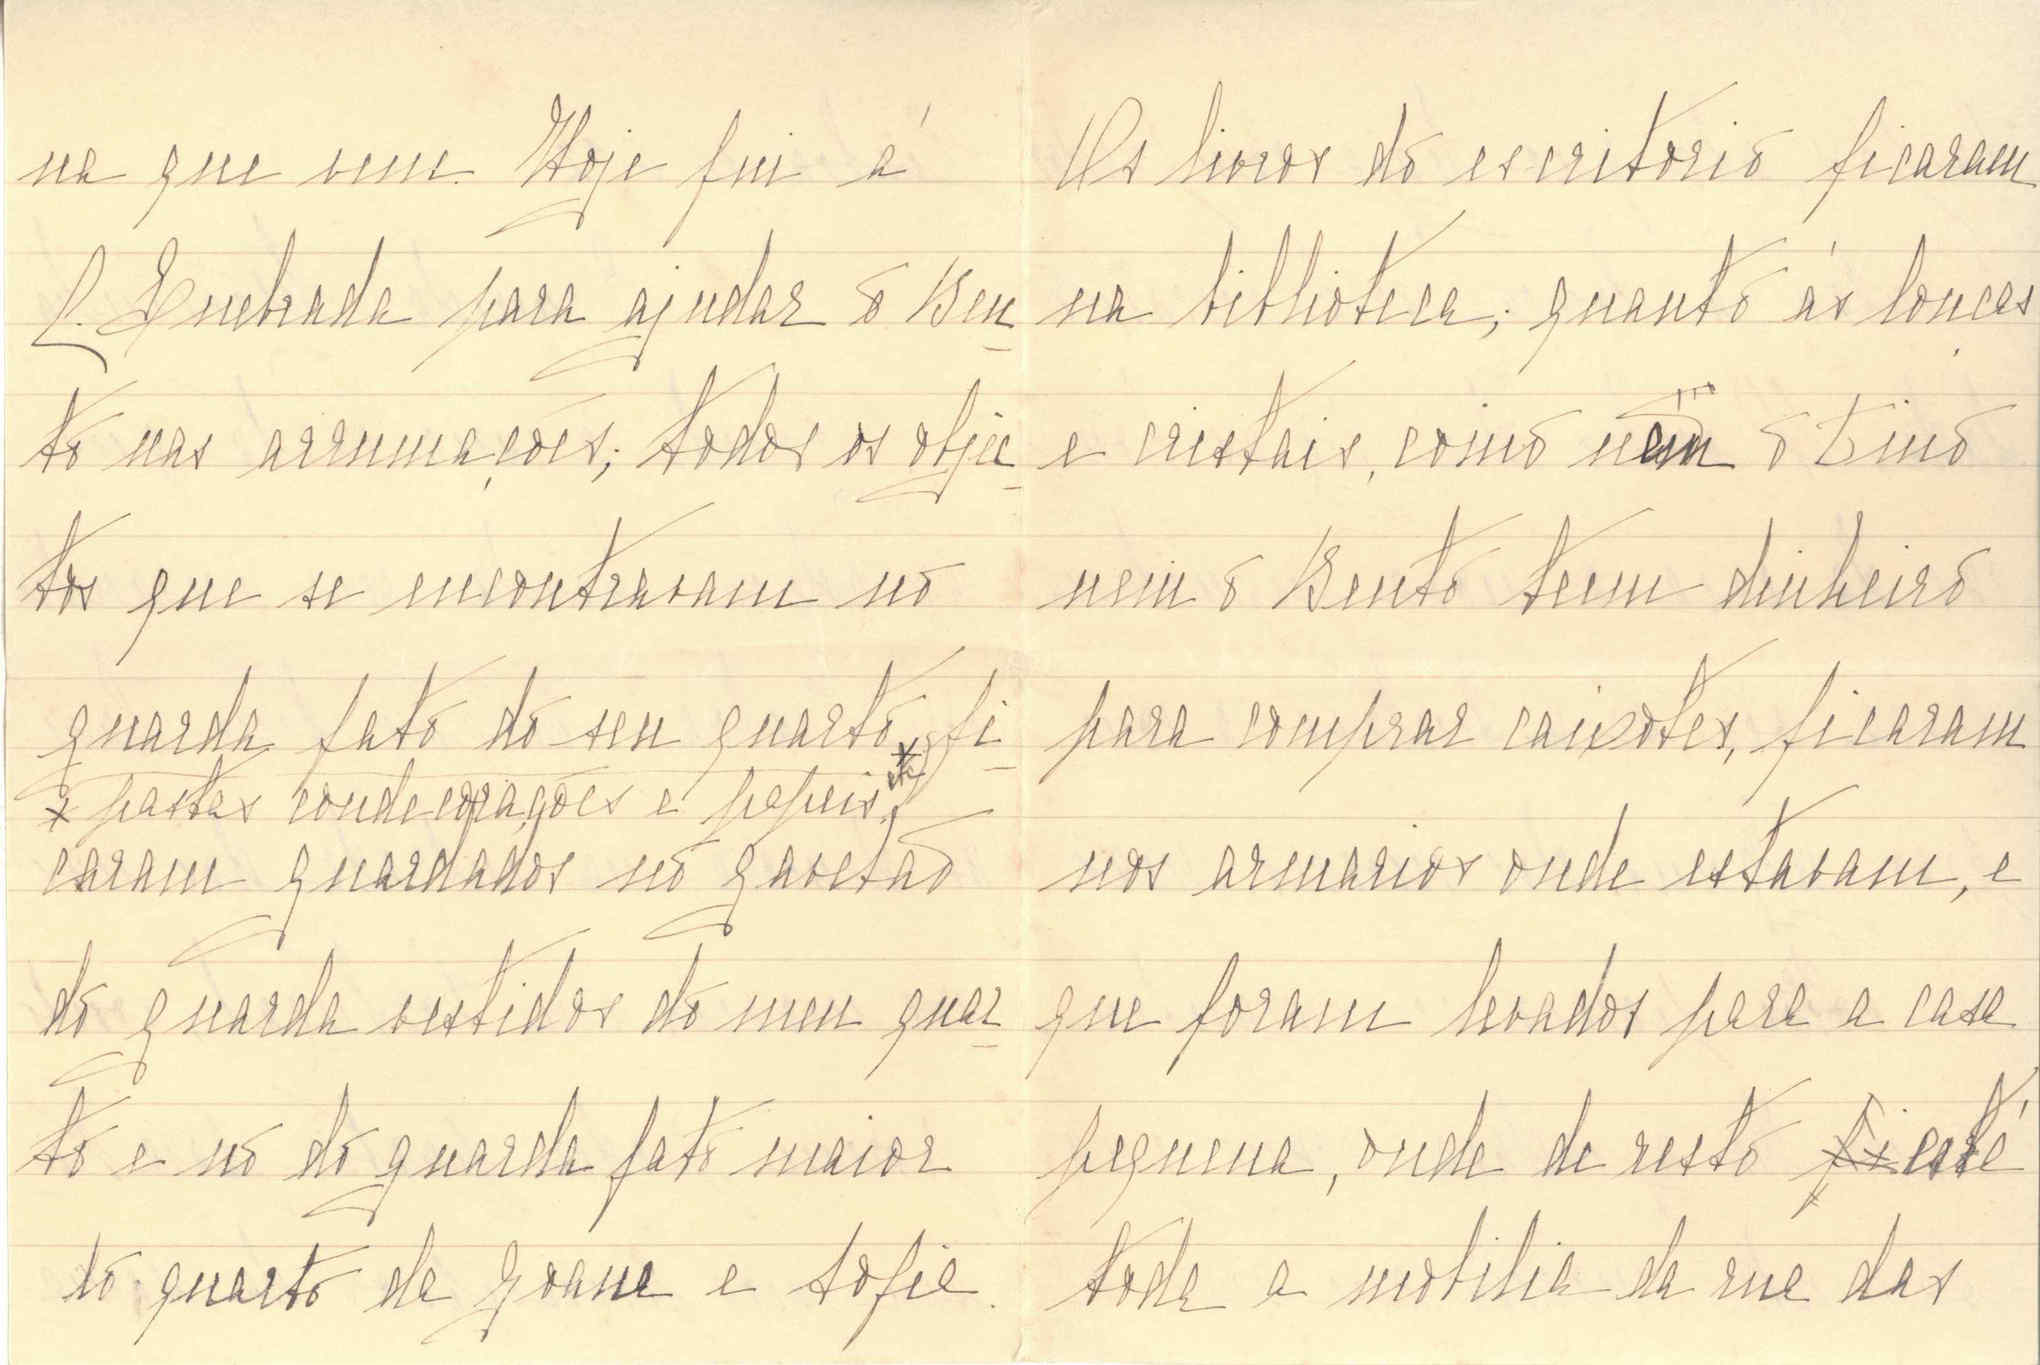 na que vem. Hoje fui á
C. Quebrada para ajudar o Ben-
to nas arrumações; todos os objec-
tos que se encontravam no
guarda fato do seu quarto * fi-
* pastas condecorações e papeis, etc
caram guardados no gavetão
do guarda vestidos do meu quar-
to e no do guarda fato maior
do quarto da Joana e Sofia.
Os livros do escritorio ficaram
na biblioteca; quanto ás louças
e cristais, como nem o Tino
nem o Bento teem dinheiro
para comprar caixotes, ficaram
nos armarios onde estavam, e
que foram levados para a casa
pequena, onde de resto está
toda a mobilia da rua das